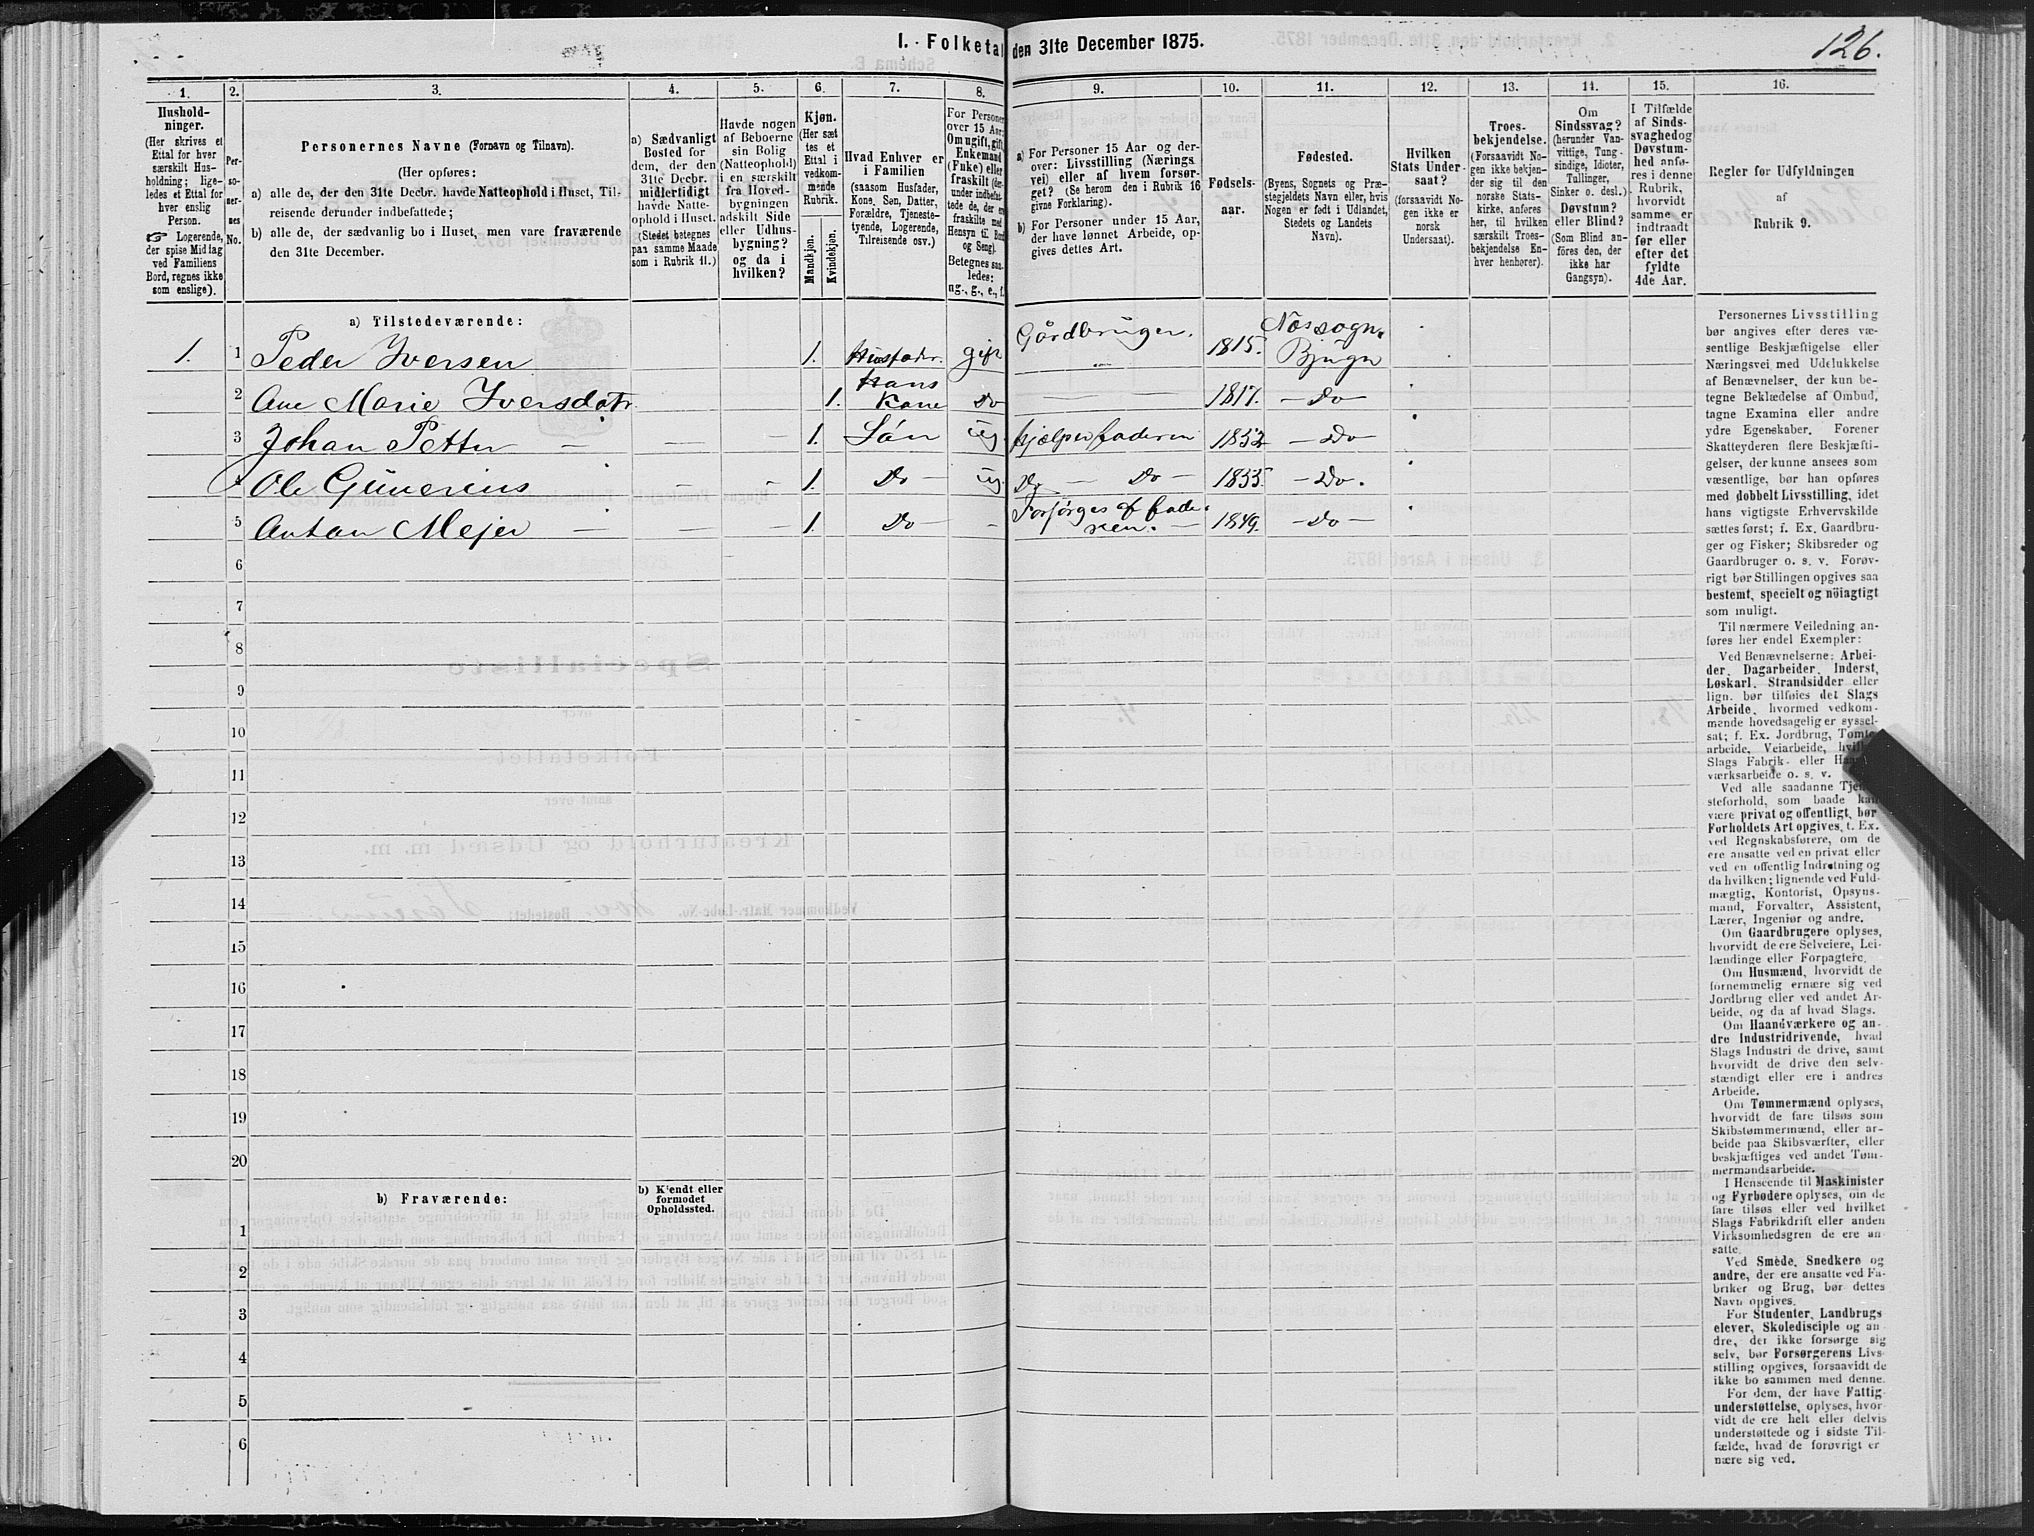 126.
I. Folketal den 31te December 1875.
1.
Hushold-
ninger.
(Her skrives et
Ettal for hver
særskilt Hus-
holdning; lige-
ledes et Ettal for
hver enslig
Person.
☞ Logerende,
der spise Middag
ved Familiens
Bord, regnes ikke
som enslige).
2.
Per-
so-
ner-
nes
No.
3.
Personernes Navne (Fornavn og Tilnavn).
(Her opføres:
a) alle de, der den 31te Decbr. havde Natteophold i Huset, Til-
reisende derunder indbefattede;
b) alle de, der sædvanlig bo i Huset, men vare fraværende
den 31te December.
4.
a) Sædvanligt
Bosted for
dem, der den
31te Decbr.
midlertidigt
havde Natte-
ophold i Huset.
(Stedet betegnes
paa samme Maade
som i Rubrik 11.)
5.
Havde nogen
af Beboerne
sin Bolig
(Natteophold)
i en særskilt
fra Hoved-
bygningen
adskilt Side
eller Udhus-
bygning?
og da i
hvilken?
6.
Kjøn.
(Her sæt
tes et
Ettal i
vedkom-
mende
Rubrik.
Mandkjøn.
Kvindekjøn.
7.
Hvad Enhver er
i Familien
(saasom Husfader,
Kone, Søn, Datter,
Forældre, Tjeneste-
tyende, Logerende,
Tilreisende osv.)
8.
For Personer
over 15 Aar:
Om ugift, gift,
Enkemand
(Enke) eller
fraskilt (der-
under indbefat-
tede de, der er
fraskilte med
Hensyn til Bord
og Seng).
Betegnes saa-
ledes:
ug., g., e., f.
9.
a) For Personer 15 Aar og der-
over: Livsstilling (Nærings
vei) eller af hvem forsør-
get? (Se herom den i Rubrik 16
givne Forklaring).
b) For Personer under 15 Aar,
der have lønnet Arbeide, op-
gives dettes Art.
10.
Fødsels-
aar.
11.
Fødested.
(Byens, Sognets og Præ-
stegjeldets Navn eller, hvis
Nogen er født i Udlandet,
Stedets og Landets
Navn).
12.
Hvilken
Stats Under-
saat?
(forsaavidt No-
gen ikke er
norsk
Undersaat).
13.
Troes-
bekjendelse.
(Forsaavidt No-
gen ikke bekjen-
der sig til den
norske Stats-
kirke, anføres
her, til hvilken
særskilt Troes-
bekjendelse En-
hver henhører).
14.
Om
Sindssvag?
(herunder Van-
vittige, Tung-
sindige, Idioter,
Tullinger,
Sinker o. desl.)
Døvstum?
eller Blind?
(Som Blind an-
føres den, der
ikke har
Gangsyn).
15.
I Tilfælde
af Sinds-
svaghed og
Døvstum-
hed anfø-
res i denne
Rubrik,
hvorvidt
samme er
indtraadt
før eller
efter det
fyldte
4de Aar.
16.
Regler for Udfyldningen
af
Rubrik 9.
a) Tilstedeværende:
1. 1 Peder Iversen 1. Husfader. gift Gårdbruger. 1815. Nes sogn. Bjugn
2 Ane Marie Iversdatr. 1. Hans Kone Do 1817. – Do –
3 Johan Petter – 1. Søn ug. hjælper faderen 1852 – Do –
4 Ole Gunerius 1. Do – ug. Do – Do – 1855. – Do.
5 Anton Mejer – 1. Do – – Forsørges af faderen. – 1849. – Do –
6
7
8
9
10
11
12
13
14
15
16
17
18
19
20
b) Fraværende:
b) Kjendt eller
formodet
Opholdssted.
1
2
3
4
5
6
Personernes Livsstilling
bør angives efter deres væ-
sentlige Beskjæftigelse eller
Næringsvei med Udelukkelse
af Benævnelser, der kun be-
tegne Beklædelse af Ombud,
tagne Examina eller andre
ydre Egenskaber. Forener
Skatteyderen flere Beskjæfti-
gelser, der kunne ansees som
væsentlige, bør han opføres
med dobbelt Livsstilling, idet
hans vigtigste Erhvervskilde
sættes først; f. Ex. Gaardbru-
ger og Fisker; Skibsreder og
Gaardbruger o. s. v. Forøv-
rigt bør Stillingen opgives saa
bestemt, specielt og nöiagtigt
som muligt.
Til nærmere Veiledning an-
føres her endel Exempler:
Ved Benævnelserne: Arbei-
der, Dagarbeider, Inderst,
Løskarl, Strandsidder eller
lign. bør tilføies det Slags
Arbeide, hvormed vedkom-
mende hovedsagelig er syssel-
sat; f. Ex. Jordbrug, Tomte-
arbeide, Veiarbeide, hvilket
Slags Fabrik- eller Haand-
værksarbeide o. s. v.
Ved alle saadanne Tjene-
steforhold, som baade kan
være privat og offentligt, bør
Forholdets Art opgives, t. Ex.
ved Regnskabsførere, om de
ere ansatte ved en privat eller
ved en offentlig Indretning og
da hvilken; lignende ved Fuld-
mægtig, Kontorist, Opsyns-
mand, Forvalter, Assistent,
Lærer, Ingeniør og andre.
Om Gaardbrugere oplyses,
hvorvidt de ere Selveiere, Lei-
lændinge eller Forpagtere.
Om Husmænd, hvorvidt de
fornemmelig ernære sig ved
Jordbrug eller ved andet Ar-
beide, og da af hvad Slags.
Om Haandværkere og an-
dre Industridrivende, hvad
Slags Industri de drive, samt
hvorvidt de drive den selv-
stændigt eller ere i andres
Arbeide.
Om Tømmermænd oplyses,
hvorvidt de fare tilsøs som
Skibstømmermænd, eller ar-
beide paa Skibsværfter, eller
beskjæftiges ved andet Tøm-
mermandsarbeide.
I Henseende til Maskinister
og Fyrbødere oplyses, om de
fare tilsøs eller ved hvilket
Slags Fabrikdrift eller anden
Virksomhedsgren de ere an-
satte.
Ved Smede, Snedkere og
andre, der ere ansatte ved Fa-
briker og Brug, bør dettes
Navn opgives.
For Studenter, Landbrugs
elever, Skoledisciple og an-
dre, der ikke forsørge sig
selv, bør Forsørgerens Livs-
stilling opgives, forsaavidt de
ikke bo sammen med denne.
For dem, der have Fattig-
understøttelse, oplyses, hvor-
vidt de ere helt eller delvis
understøttede og i sidste Til-
fælde, hvad de forøvrigt er
nære sig ved.